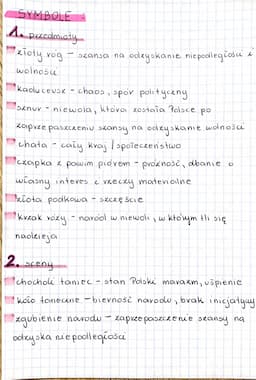 SYMBOLE
1. przedmioty
złoty róg – szansa na odzyskanie niepodległości i
wolności
kaduceusz – chaos, spór polityczny
sznur – niewola, która została Polsce po
zaprzepaszczeniu szansy na odzyskanie wolności
chata – cały kraj / społeczeństwo
czapka z pawim piórem – próżność, dbanie o
własny interes i rzeczy materialne
złota podkowa – szczęście
krzak róży – naród w niewoli, w którym tli się
nadzieja
2. sceny
chocholi taniec – stan Polski marazm, uśpienie
koło taneczne – bierność narodu, brak inicjatywy
zgubienie narodu – zaprzepaszczenie szansy na
odzyska niepodległości